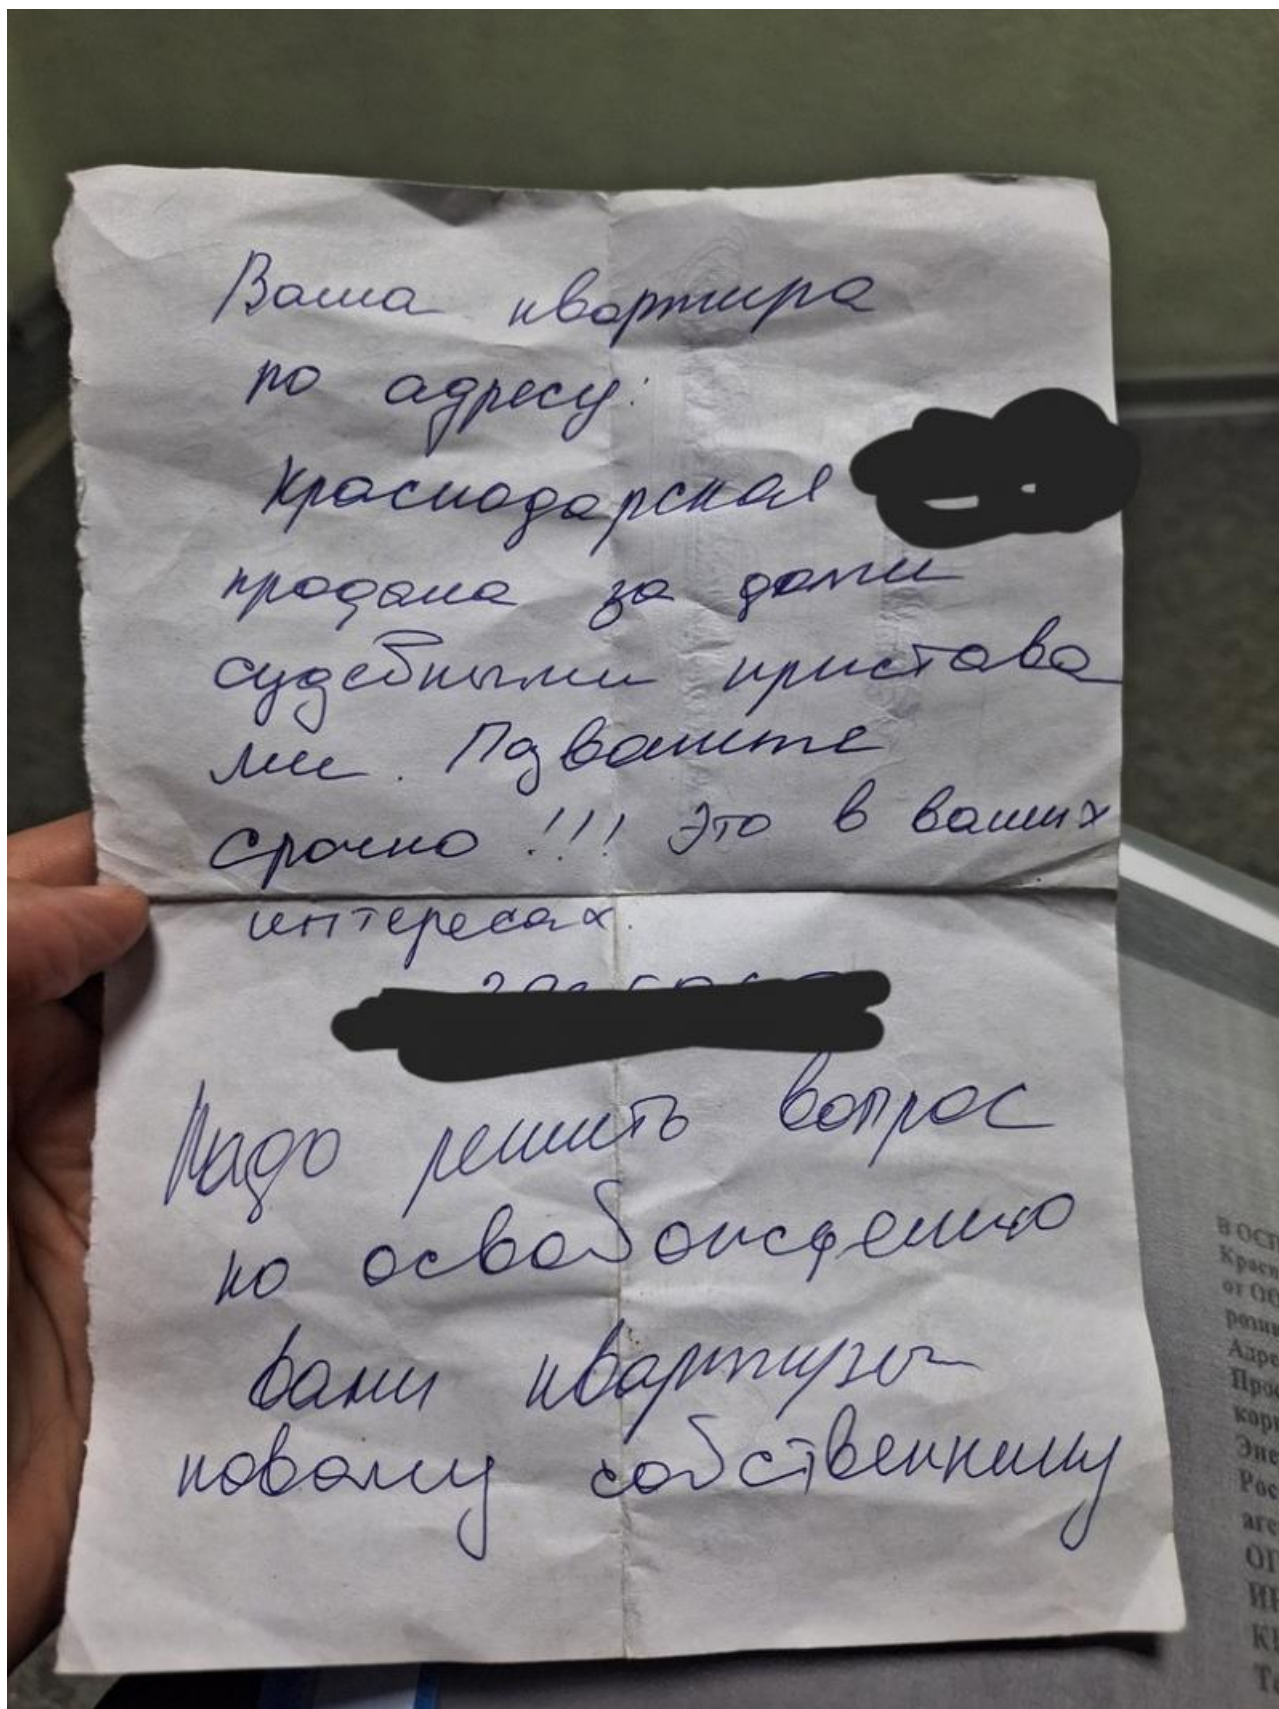 Ваша квартира
по адресу:
Краснодарская
продана за долги
судебными пристава
ми. Позвоните
срочно!!! Это в ваших
интересах.
Надо решить вопрос
по освобождению
вами квартиры
новому собственнику
В ОСП
Красн
от ОС
розни
Адре
Прос
корп
Эне
Рос
аге
ОГ
ИН